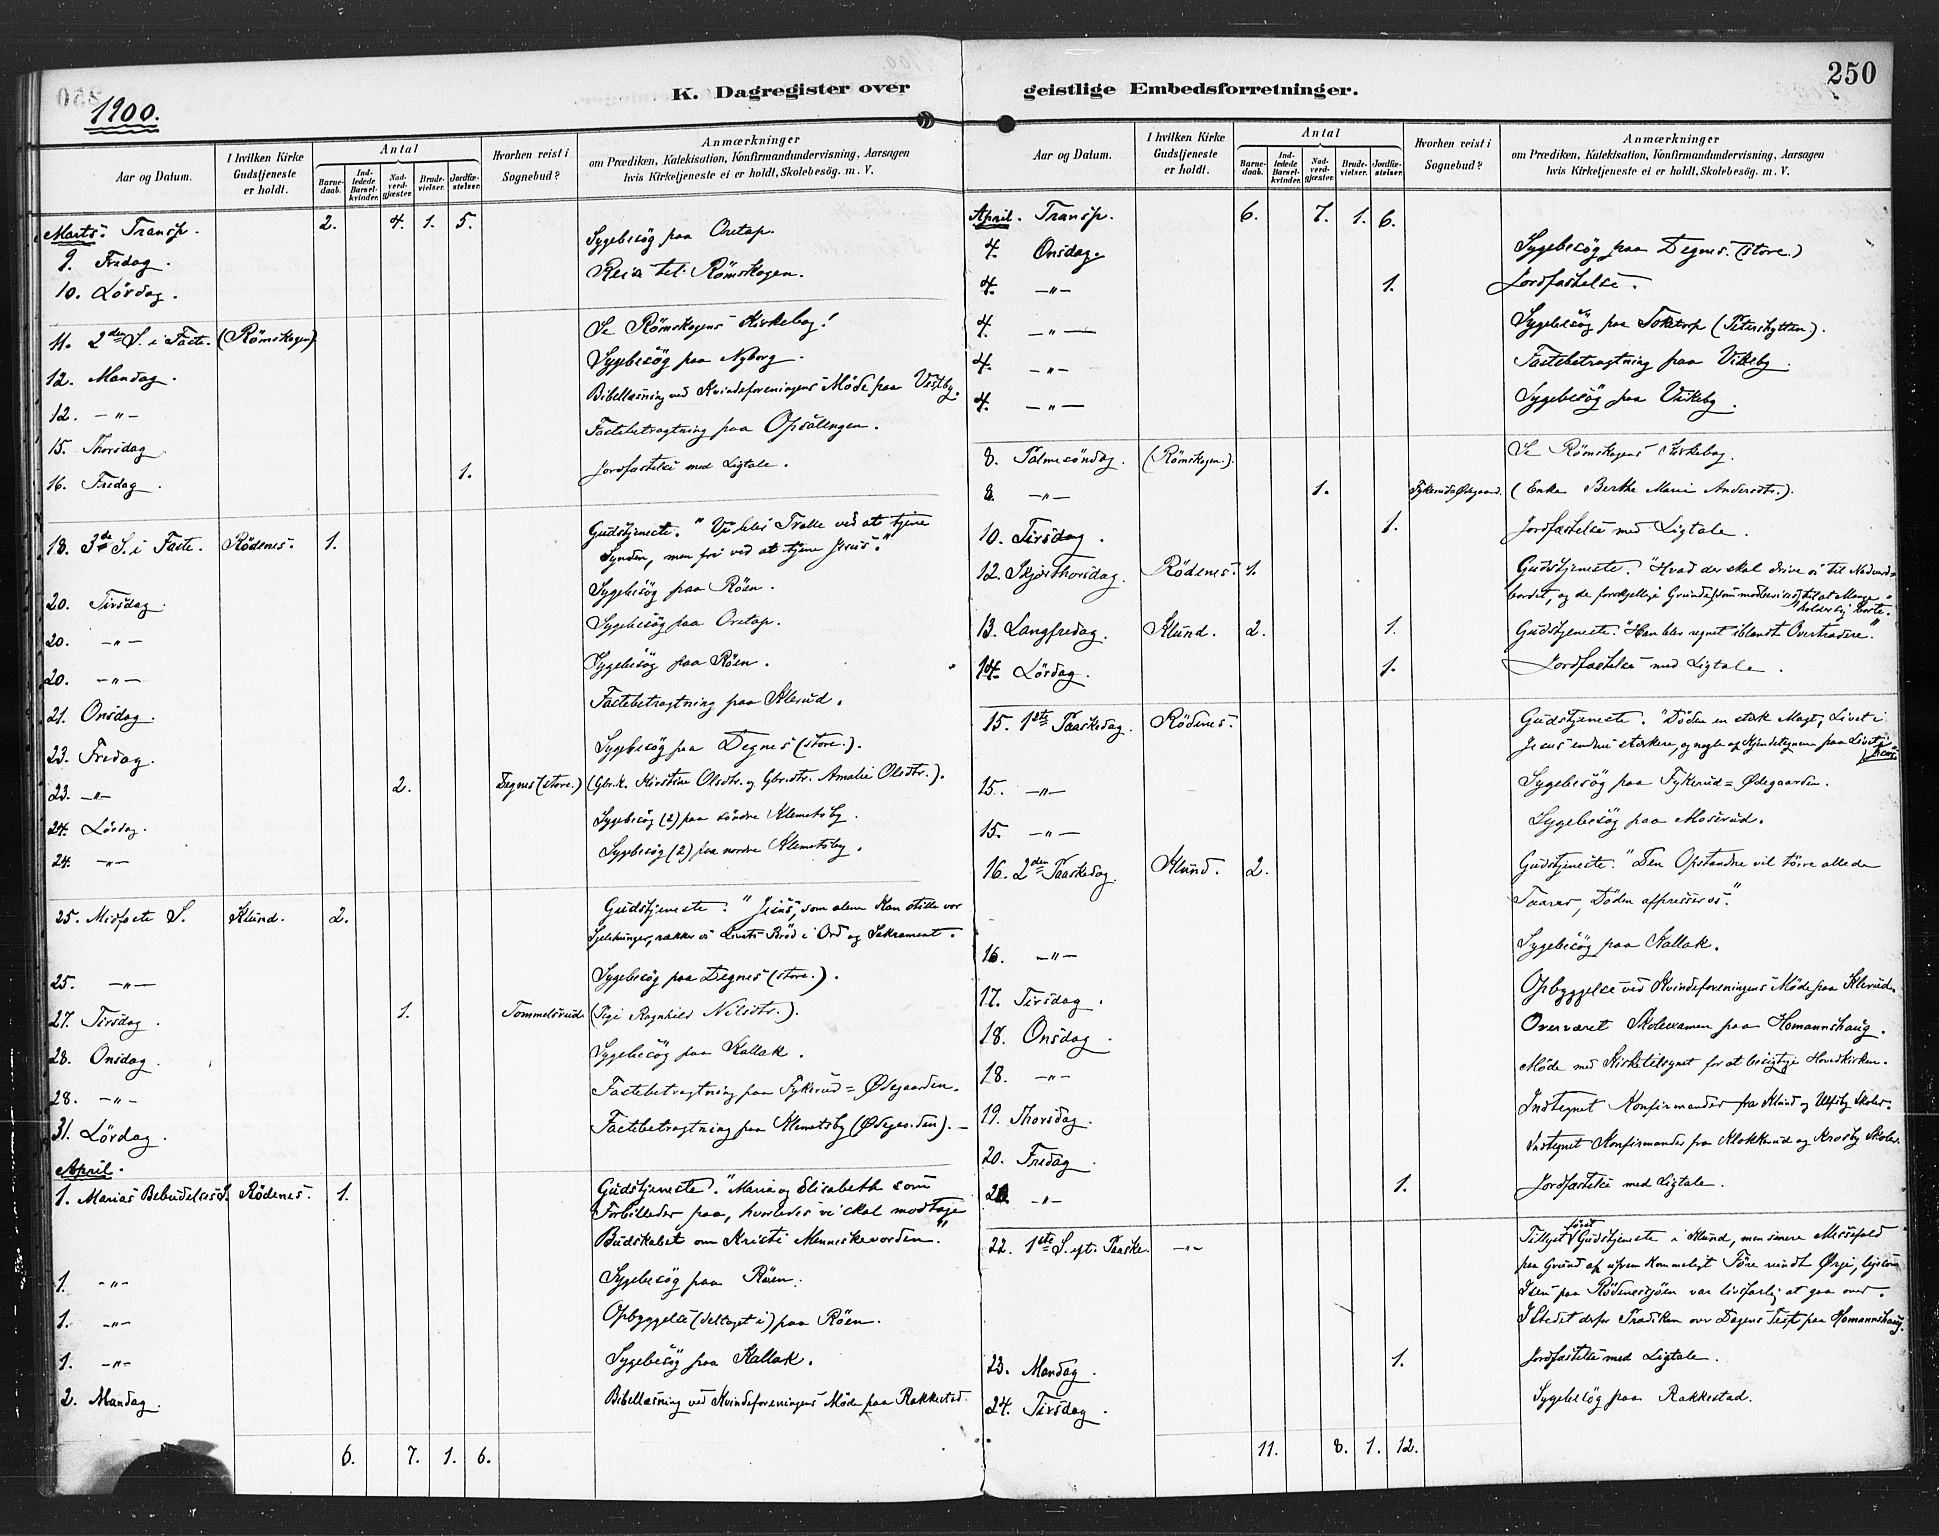 1900.
K. Dagregister over
Aar og Datum. I hvilken Kirke Gudstjeneste er holdt. Antal Barnedaab. Indledede Barselkvinder. Nadverdgjæster. Brudevielser. Jordfæstelser. Hvorhen reist i Sognebud? Anmærkninger om Prædiken, Katekisation, Konfirmandundervisning, Aarsagen hvis Kirketjeneste ei er holdt, Skolebesøg. m. V.
Marts. Transp. 2. 4. 1. 5.
9. Fredag. Sygebesög paa Oretap.
10. Lördag. Reise til Römskogen.
11. 2den S. i Faste. (Römskogen) Se Römskogens Kirkebog!
12. Mandag. Sygebesög paa Nyborg.
12. —"— Bibellæsning ved Kvindeforeningens Möde paa Vestby.
15. Thorsdag. Fastebetragtning paa Opsalengen.
16. Fredag. 1. Jordfæstelse med Ligtale.
18. 3de S. i Faste. Rödenes. 1. Gudstjeneste. "Vi blev Trælle ved at tjene
Synden, men fri ved at tjene Jesus."
20. Tirsdag. Sygebesög paa Röen.
20. —"— Sygebesög paa Oretap.
20. —"— Sygebesög paa Röen.
21. Onsdag. Fastebetragtning paa Klerud.
23. Fredag. Sygebesög paa Degnes (store.).
23. —"— 2. Degnes (store.) (Gbr.k. Kirstine Olsdtr. og Gbr.dtr. Amalie Olsdtr.).
24. Lördag. Sygebesög (2) paa söndre Klemetsby.
24. —"— Sygebesög (2) paa nordre Klemetsby.
25. Midfaste S. Klund. 2. Gudstjeneste. "Jesus, som alene kan stille vor
Sjelehunger, rækker os Livets Bröd i Ord og Sakrament.
25. —"— Sygebesög paa Degnes (store.).
27. Tirsdag. 1. Tommelsrud. (Pige Ragnhild Nilsdtr.).
28. Onsdag. Sygebesög paa Kallak.
28. —"— Fastebetragtning paa Fykerud = Ödegaarden.
31. Lördag. Fastebetragtning paa Klemetsby (Ödegaarden). —
April.
1. Marias Bebudelses S. Rödenes. 1. Gudstjeneste. "Maria og Elisabeth som
Forbilleder paa, hvorledes vi skal modtage
Budskabet om Kristi Menneskevorden."
1. —"— Sygebesög paa Röen.
1. —"— Opbyggelse (deltaget i) paa Röen.
1. —"— Sygebesög paa Kallak.
2. Mandag. Bibellæsning ved Kvindeforeningens Möde paa Rakkestad.
6. 7. 1. 6.
250
geistlige Embedsforretninger.
Aar og Datum. I hvilken Kirke Gudstjeneste er holdt. Antal Barnedaab. Indledede Barselkvinder. Nadverdgjæster. Brudevielser. Jordfæstelser. Hvorhen reist i Sognebud? Anmærkninger om Prædiken, Katekisation, Konfirmandundervisning, Aarsagen hvis Kirketjeneste ei er holdt, Skolebesøg. m. V.
April. Transp. 6. 7. 1. 6.
4. Onsdag. Sygebesög paa Degnes. (store.)
4. —"— 1. Jordfæstelse.
4. —"— Sygebesög paa Toketorp (Petershytten).
4. —"— Fastebetragtning paa Vikeby.
4. —"— Sygebesög paa Vikeby.
8. Palmesöndag. (Römskogen.). Se Römskogens Kirkebog.
8. —"— 1. Fykerud=Ödegaard. (Enke Berthe Marie Andersdtr.).
10. Tirsdag. 1. Jordfæstelse med Ligtale.
12. Skjærthorsdag. Rödenes. 1. Gudstjeneste. "Hvad der skal drive os til Nadverd=
bordet, og de forskjellige Grunde, som modbevises, til at Mange
holder sig borte."
13. Langfredag. Klund. 2. 1. Gudstjeneste. "Han blev regnet iblandt Overtrædere."
14. Lördag. 1. Jordfæstelse med Ligtale.
15. 1ste Paaskedag. Rödenes. Gudstjeneste. "Döden en stærk Magt, Livet i
Jesus endnu stærkere, og nogle af Kjendetegnene paa Livet i
Jesus."
15. —"— Sygebesög paa Fykerud = Ödegaarden.
15. —"— Sygebesög paa Moserud.
16. 2den Paaskedag. Klund. 2. Gudstjeneste. "Den Opstandne vil törre alle de
Taarer, Döden afpresser os."
16. —"— Sygebesög paa Kallak.
17. Tirsdag. Opbyggelse ved Kvindeforeningens Möde paa Klerud.
18. Onsdag. Overværet Skoleexamen paa Homannshaug.
18. —"— Möde med Kirketilsynet for at besigtige Hovedkirken.
19. Thorsdag. Indtegnet Konfirmander fra Klund og Ulfsby Skoler.
20. Fredag. Indtegnet Konfirmander fra Klokkerud og Krosby Skoler.
20. —"— 1. Jordfæstelse med Ligtale.
22. 1ste S. eft. Paaske. —"— Tillyst först Gudstjeneste i Klund, men senere Messefald
paa Grund af ufremkommeligt Före rundt Örje, ligesom
Isen paa Rödenessjöen var livsfarlig at gaa over.
I Stedet derfor Prædiken over Dagens Text paa Homannshaug.
23. Mandag. 1. Jordfæstelse med Ligtale.
24. Tirsdag. Sygebesög paa Rakkestad.
11. 8. 1. 12.